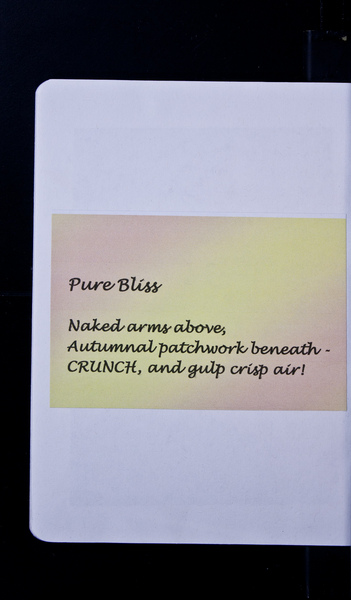 Pure Bliss
Naked arms above,
Autumnal patchwork beneath -
CRUNCH, and gulp crisp air!